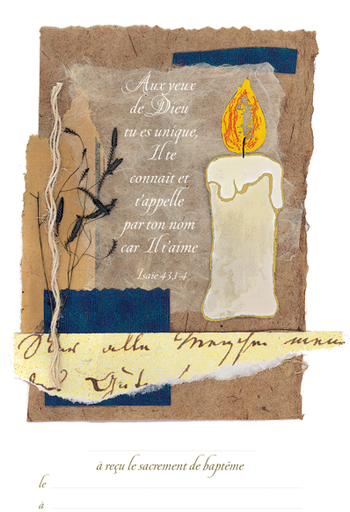 Aux yeux
de Dieu
tu es unique,
Il te
connaît et
t'appelle
par ton nom
car Il t'aime
Isaïe 43,1-4
alle
a reçu le sacrement de baptême
le
à